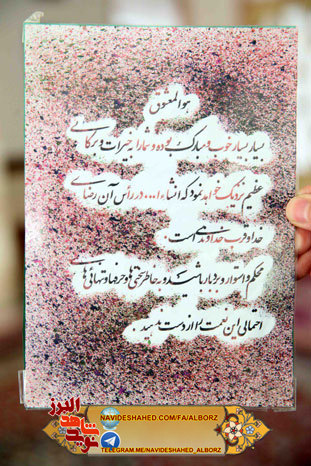 هوالمعشوق
بسیار بسیار خوب و مبارک بوده و شما را بخیرات و برکاتی
عظیم نزدیک خواهد نمود که انشاءا... در رأس آن رضای
خدا و قرب خداوندی است.
محکم و استوار و بردبار باشید و به خاطر سختی‌ها و حرفها و تنهائی‌های
احتمالی این نعمت را از دست ندهید.
نوید شاهد البرز
NAVIDESHAHED.COM/FA/ALBORZ
TELEGRAM.ME/NAVIDESHAHED_ALBORZ